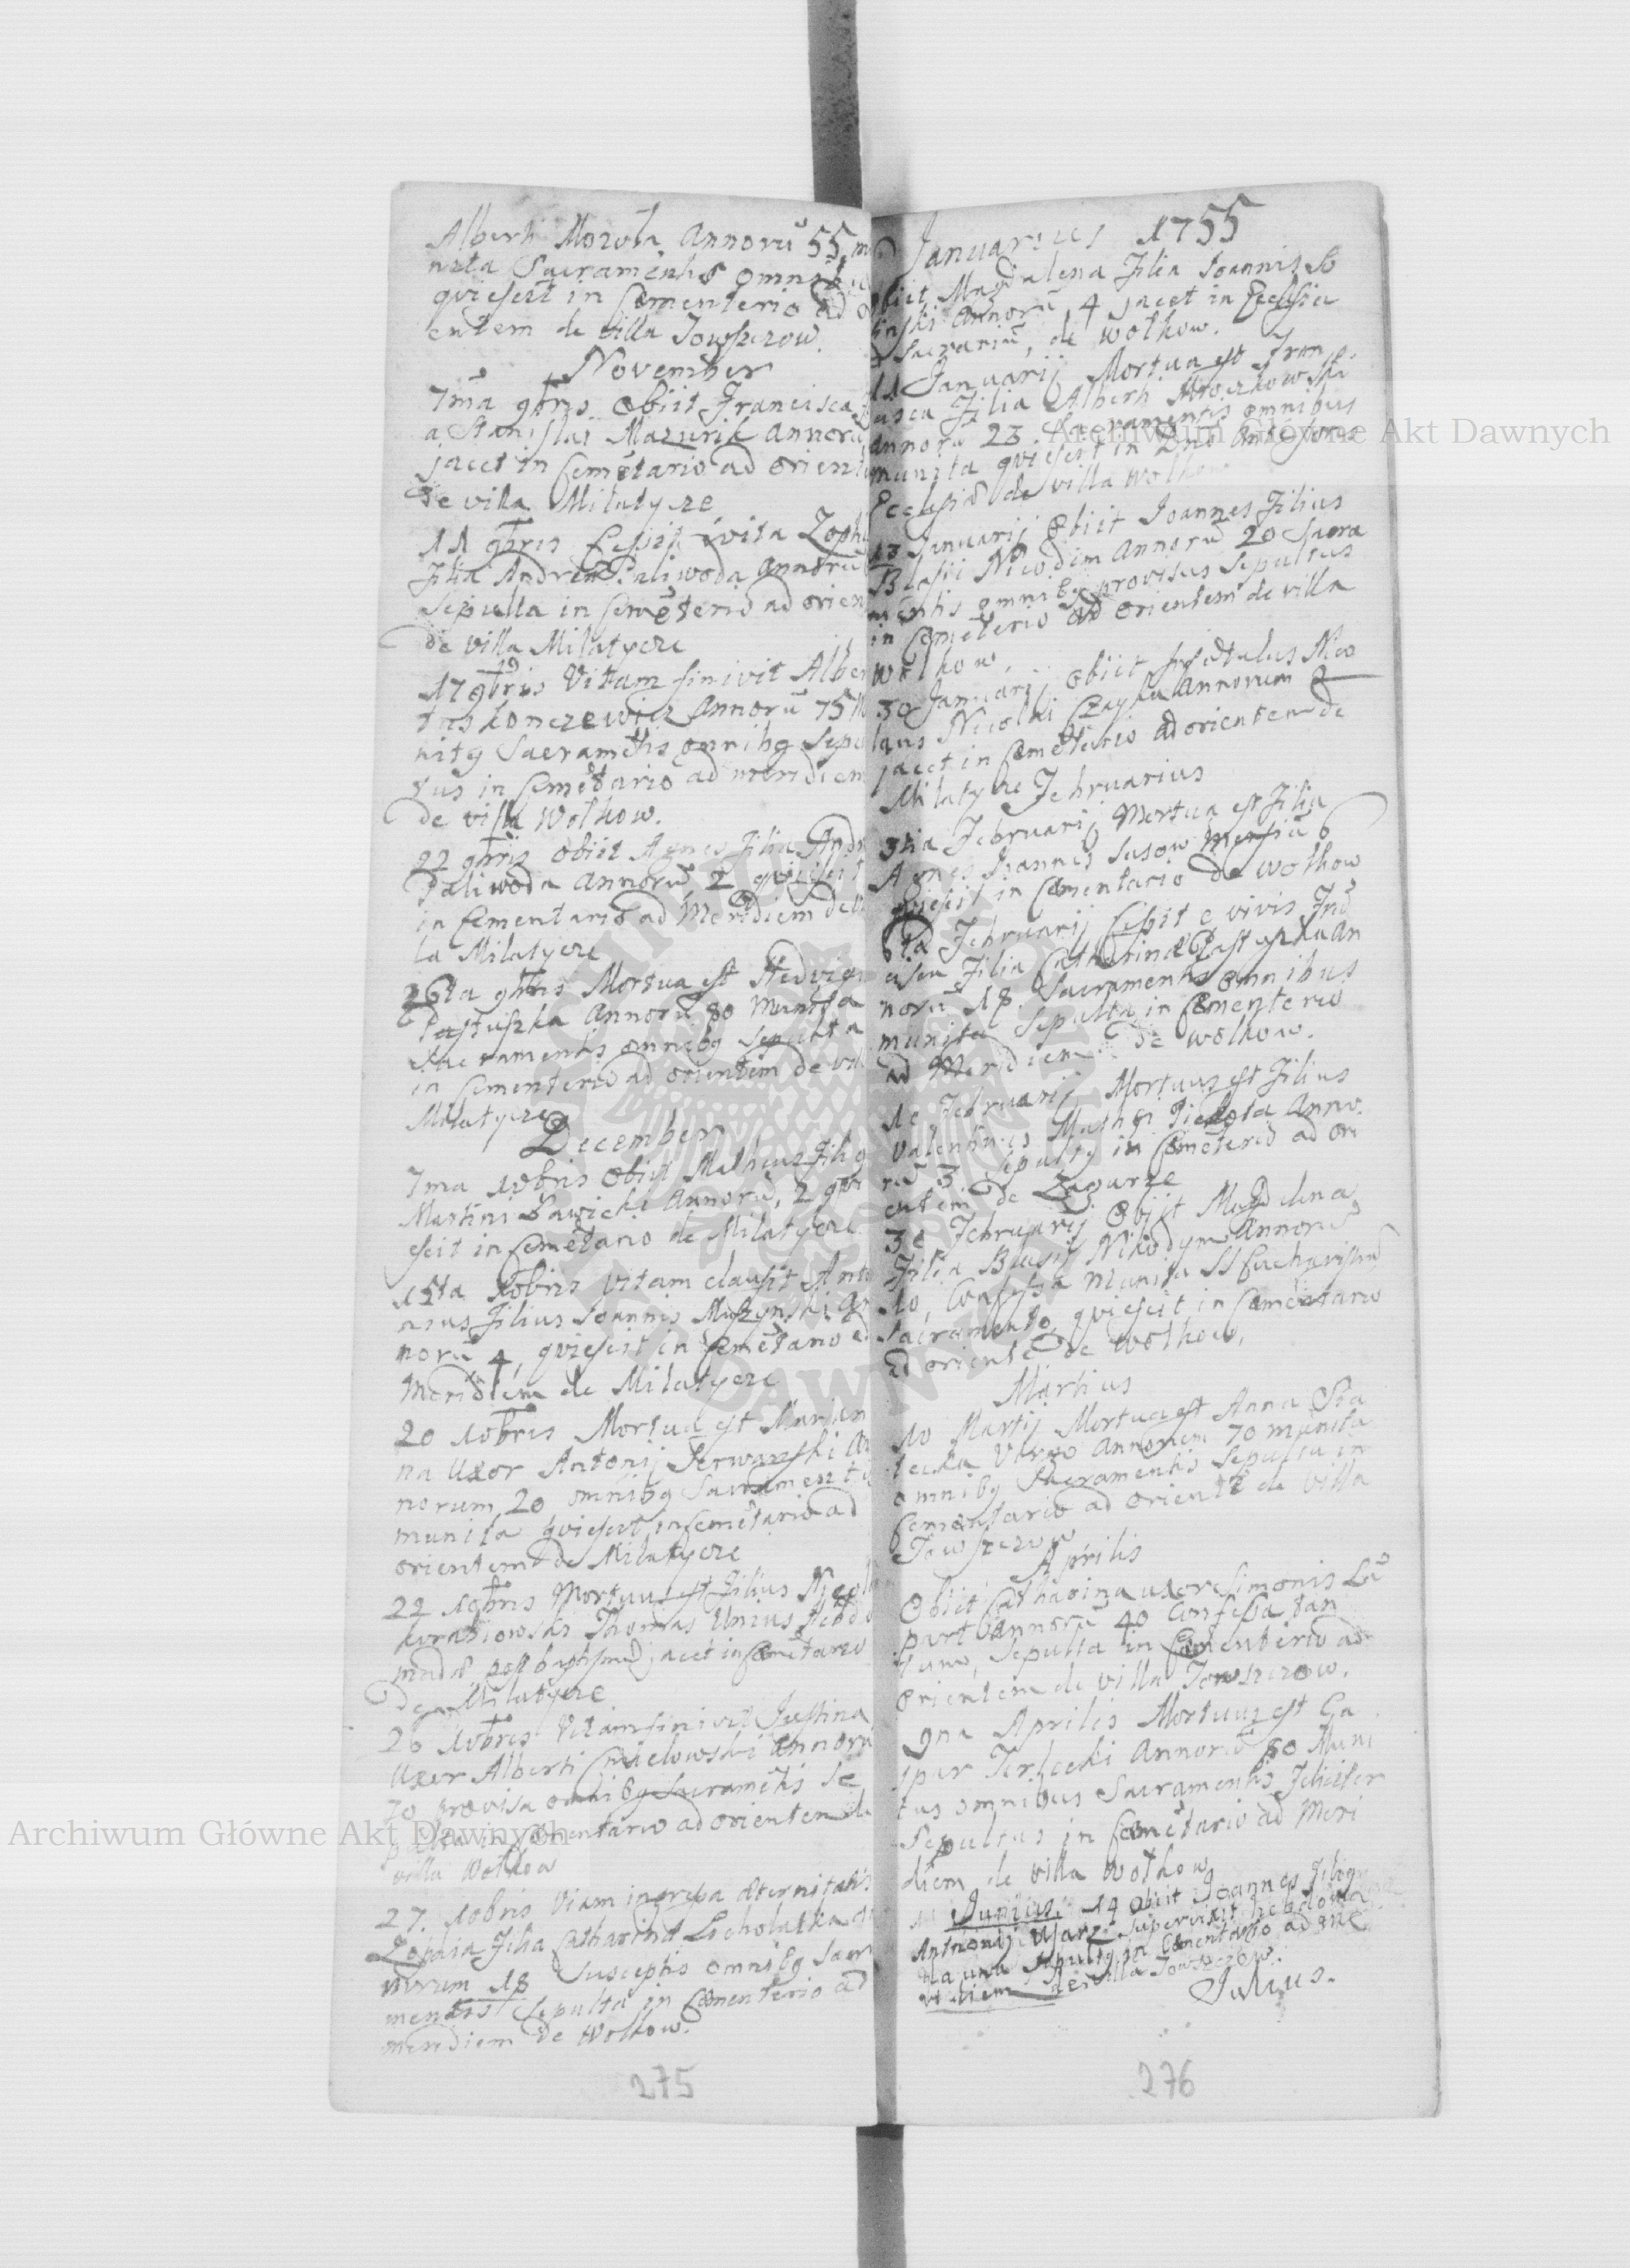 Alberti Mozola Annorū 55, mu
nita Sacramentis omnibus
qviescit in Cementerio ad ori
entem de villa Jowszczow.
November
7ma 9bris Obiit Francisca
a Stanislai Mazurik Annorū
jacet in Cemētario ad orient
de villa Milatycze
11 9bris Cessit é vita Zophi
Filia Andreæ Paliwoda Annorū
Sepulta in Cemēterio ad orien
de villa Milatycze
17 9bris Vitam finivit Alber
tus konczewicz Annorū 75 Mu
nitq Sacramētis omnibq Sepul
tus in Cemētario ad meridiem
de villa Wolkow.
22 9bris Obiit Agnes Filia Andr
Paliwoda Annorū 2 qviescit
in Cementario ad Meridiem de vi
la Milatycze
26ta 9bris Mortua est Hedvigis
Pastuszka Annorū 80 Munita
Sacramentis omnibq Sepulta
in Cementerio ad orientem de vil
Milatycze
December
7ma Xbris Obiit Matheus Filiq
Martini Sawicki Annorū 2 qvi
escit in Cemētario de Milatycze
15ta Xbris Vitam clausit Anto
nius Filius Joannis Muszynski An
norū 4, qviescit in Cemētario ad
Meridiem de Milatycze
20 Xbris Mortua est Marian
na Uxor Antonij Serwanski An
norum 20 omnibq Sacramentis
munita qviescit in Cemētario ad
orientem de Milatycze
22 Xbris Mortuus est Filius Nicolai
Thomas Unius Hebdo
madæ post baptismū jacet in Cemētario
de Milatycze
26 Xbris Vitam finivit Justina
Uxor Alberti Cmielowski Annorū
70 provisa omnibq Sacramētis Se
pulta in Cementario ad orientem de
villa Wolkow
27. Xbris Viam ingressa æternitatis
Zophia Filia Catharinæ Lecholatka An
norum 18 Susceptis omnibq Sacra
mentis Sepulta in Cementerio ad
meridiem de Wolkow.
275
Januarius 1755
Obiit Magdalena Filia Joannis So
linski Annorū 4 jacet in Ecclesia
Sacrariū, de Wolkow.
11 Januarij Mortua est Fran
cisca Filia Alberti Mroczkowski
Annorū 23 Sacramentis omnibus
munita qviescit in
Ecclesiæ de villa Wolkow
13 Januarij Obiit Joannes Filius
Blasii Nicodim Annorū 20 Sacra
mentis omnibq provisus Sepultus
in Cemēterio ad orientem de villa
Wolkow.
30 Januarij obiit Nico
laus Nicolai Czayka Annorum 2
jacet in Cemētario ad orientem de
Milatycze Februarius
3tia Februarij Mortua est Filia
Agnes Joannis Sasow Mensiū 6
qviescit in Cementario de Wolkow
6ta Februarij Cessit e vivis Frā
cisca Filia Catharinæ Pastuszka An
norū 18 Sacramentis omnibus
munita Sepulta in Cementerio
ad Meridiem de Wolkow.
10 Februarij Mortuus est Filius
Valentinus Mathei Piekota Anno
rū 3 Sepultq in Cemēterio ad ori
entem de Zagurze
30 Februarij Obiit Magdalena
Filia Blasij Nikodym Annorū
10, Confessa munita SS Eucharistiæ
Sacramento, qviescit in Cementario
ad orientē de Wolkow.
Martius
10 Martij Mortua est Anna
Virgo Annorum 70 munita
omnibq Sacramentis Sepulta in
Cementario ad orientē de villa
Jowszczow
Aprilis
Obiit Catharina uxor Simonis
part Annorū 40 Confessa tan
tum, Sepulta in Cementerio ad
Orientem de villa Jowszczow.
9na Aprilis Mortuus est Ga
spar Terlecki Annorū 80 Muni
tus omnibus Sacramentis Feliciter
Sepultus in Cemētario ad Meri
diem de villa Wolkow
Junius. 14 Obiit Joannes Filiq
Antonij supervixit hebdoma
da una Sepultq in Cementario ad me
ridiem de villa Jowszczow.
Julius.
276
Archiwum Główne Akt Dawnych
Archiwum Główne Akt Dawnych